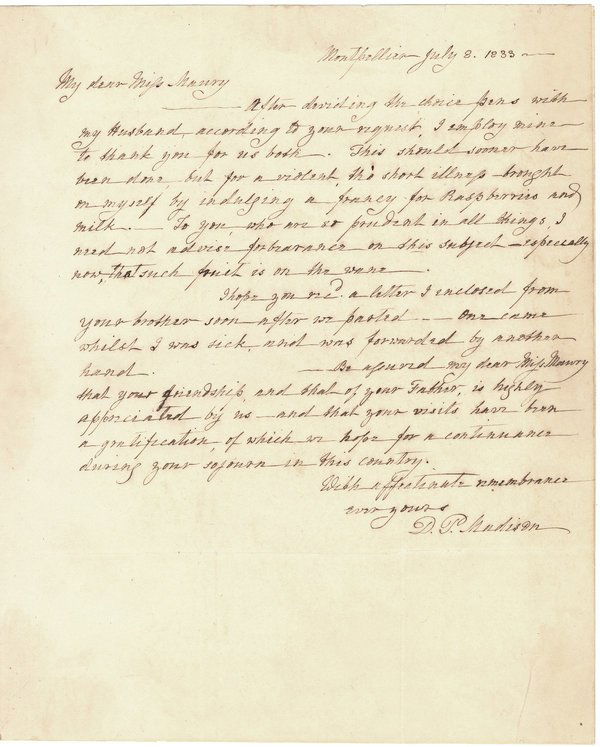 Montpellier July 8. 1833
My dear Miss Maury
After deviding the choice pens with
my Husband, according to your request, I employ mine
to thank you for us both. This should sooner have
been done but for a violent, tho' short illness brought
on myself by indulging a francy for Raspberries and
milk. — To you, who are so prudent in all things, I
need not advise forbearance on this subject — especially
now, that such fruit is on the wane.
I hope you recd. a letter I inclosed from
your brother soon after we parted — One came
whilst I was sick, and was forwarded by another
hand. — Be assured my dear Miss Maury
that your friendship, and that of your Father, is highly
appreciated by us — and that your visits have been
a gratification, of which we hope for a continuance
during your sojourn in this country.
With affectionate remembrance
ever yours
D. P. Madison